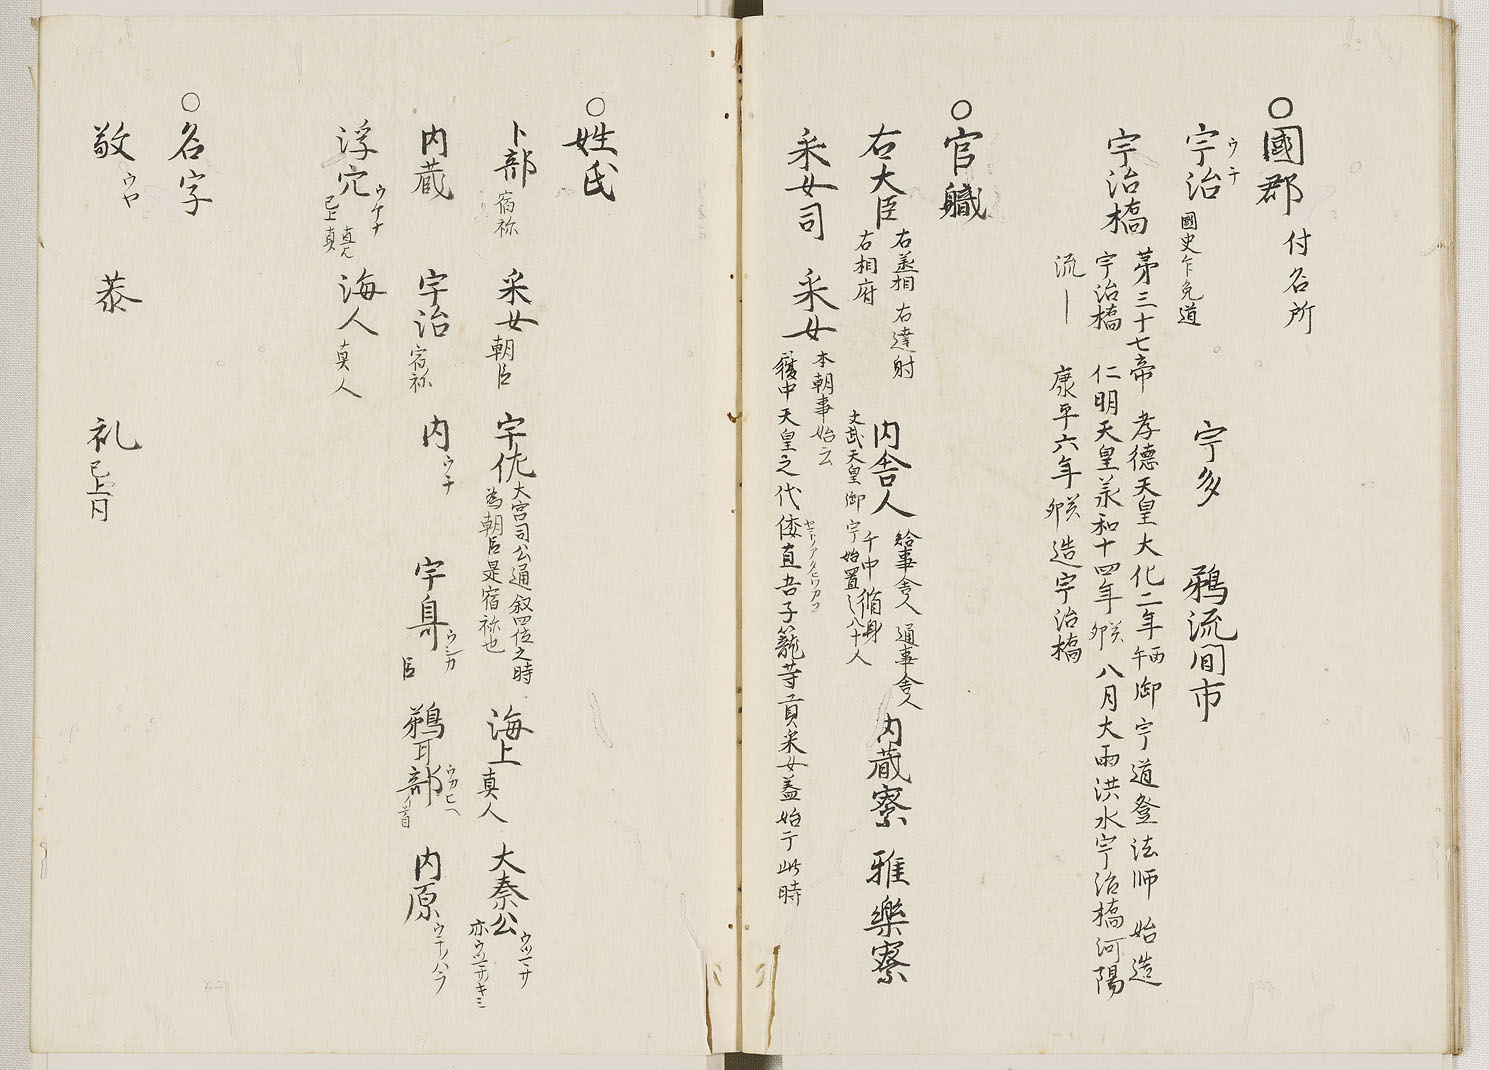 ○國郡 付名所
宇治 ウチ 國史乍免道 宇多 鵜流間市
宇治橋 苐三十七帝 孝德天皇大化二年 丙午 御宇道登法師 始造
宇治橋 仁明天皇羕和十四年 癸卯 八月大雨洪水宇治橋河陽
流― 康平六年 癸卯 造宇治橋
○官軄
右大臣 右丞相 右達射
右相府 内舎人 給事舎人 通事舎人
千中 脩身
文武天皇御宇始置之八十人 内蔵寮 雅樂寮
采女司 采女 本朝事始云
雘中天皇之代倭直吾子籠䒭貢采女蓋始于此時
○姓氏
卜部 宿祢 采女 朝臣 宇佐 大宮司公通叙四位之時
為朝臣是宿祢也 海上 真人 大秦公 ウツマサ
亦ウツマサキミ
内蔵 宇治 宿祢 内 ウチ 宇自 ウシカ 臣 鵜耳部 ウカヒヘ 首 内原 ウチノハラ
浮穴 ウケナ 真人
已上真 海人 真人
○名字
敬 ウヤ 恭 礼 已上同